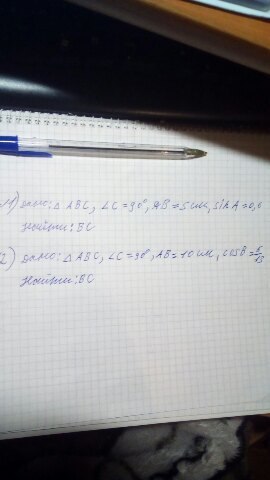 1) Дано: △ ABC, ∠C = 90°, AB = 5 см, sin A = 0,6
Найти: BC
2) Дано: △ ABC, ∠C = 90°, AB = 10 см, cos B = 5/13
Найти: BC